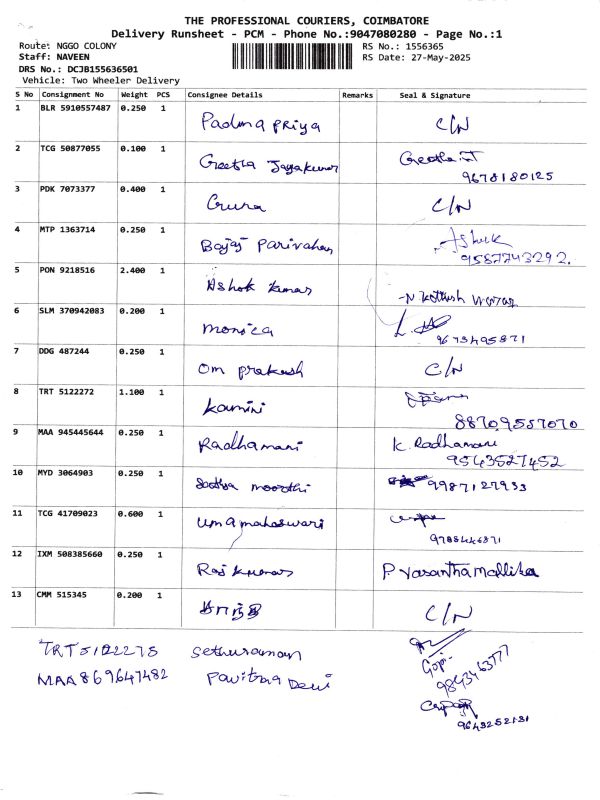 THE PROFESSIONAL COURIERS, COIMBATORE
Delivery Runsheet - PCM - Phone No.:9047080280 - Page No.:1
Route: NGGO COLONY RS No.: 1556365
Staff: NAVEEN RS Date: 27-May-2025
DRS No.: DCJB155636501
Vehicle: Two Wheeler Delivery
S No Consignment No Weight PCS Consignee Details Remarks Seal & Signature
1 BLR 5910557487 0.250 1 Padma priya C/N
2 TCG 50877055 0.100 1 Geetha Jayakumar Geetha J
9678180125
3 PDK 7073377 0.400 1 Guna C/N
4 MTP 1363714 0.250 1 Bajaj Parivahan Ashuk
9587743292.
5 PON 9218516 2.400 1 Ashok kumar
6 SLM 370942083 0.200 1 monica
9673495871
7 DDG 487244 0.250 1 om prakash C/N
8 TRT 5122272 1.100 1 kamini
88709557070
9 MAA 945445644 0.250 1 Radhamani K. Radhamani
9543527452
10 MYD 3064903 0.250 1 moorthi 9987127933
11 TCG 41709023 0.600 1 umamaheswari
9788446871
12 IXM 508385660 0.250 1 Raj kumar P. Vasantha Mallika
13 CMM 515345 0.200 1 C/N
TRT 5122275 Sethuraman
Gopi
9843463777
MAA 869647482 Pavitra Devi
9643252131